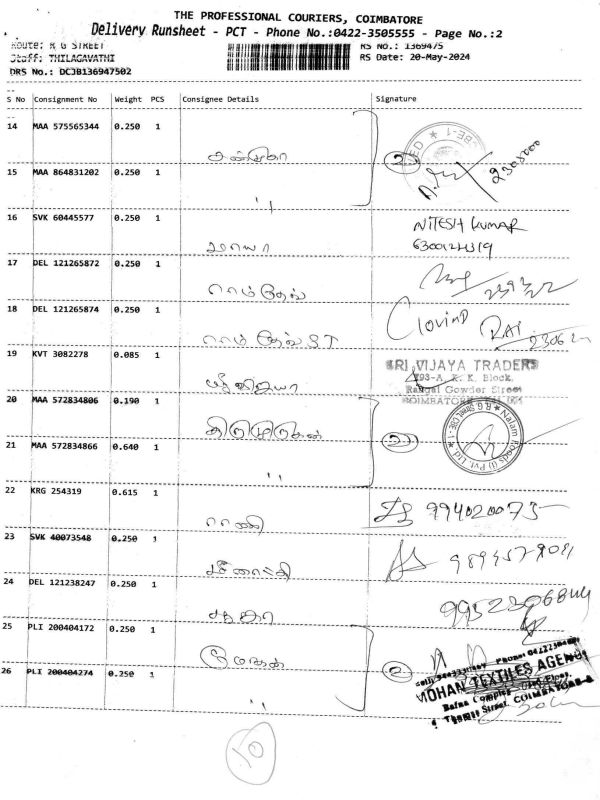 THE PROFESSIONAL COURIERS, COIMBATORE
Delivery Runsheet - PCT - Phone No.:0422-3505555 - Page No.:2
Route: R G STREET
RS No.: 1369475
Staff: THILAGAVATHI
RS Date: 20-May-2024
DRS No.: DCJB136947502
S No Consignment No Weight PCS Consignee Details Signature
14 MAA 575565344 0.250 1
2
15 MAA 864831202 0.250 1
"
16 SVK 60445577 0.250 1 மாயா NITESH KUMAR
17 DEL 121265872 0.250 1 ராம்தேவ்
18 DEL 121265874 0.250 1 ராம்தேவ் ST GOVIND RAI
19 KVT 3082278 0.085 1 ஸ்ரீவிஜயா
SRI VIJAYA TRADERS
793-A, R. K. Block,
Rangai Gowder Street
COIMBATORE
20 MAA 572834806 0.190 1 திருமுருகன்
Nalam Foods (I) Pvt. Ltd. R G Street CBE-1
2
21 MAA 572834866 0.640 1 "
22 KRG 254319 0.615 1 ராணி
23 SVK 40073548 0.250 1
24 DEL 121238247 0.250 1
25 PLI 200404172 0.250 1 மோகன்
2
26 PLI 200404274 0.250 1 "
MOHAN TEXTILES AGENCY
Street, COIMBATORE
10